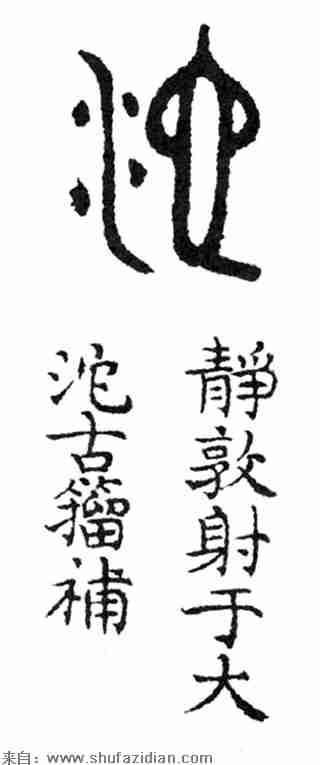 沱
靜敦射于大
沱古籀補
来自：www.shufazidian.com